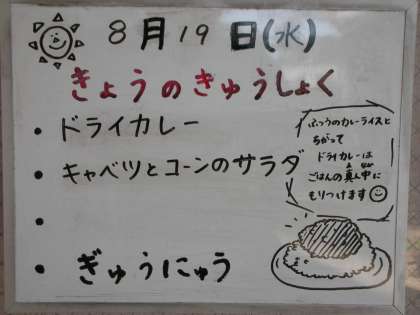 8月19日(水)
きょうのきゅうしょく
・ドライカレー
・キャベツとコーンのサラダ
・
・ぎゅうにゅう
ふつうのカレーライスと
ちがって
ドライカレーは
ごはんの真ん中に
もりつけます